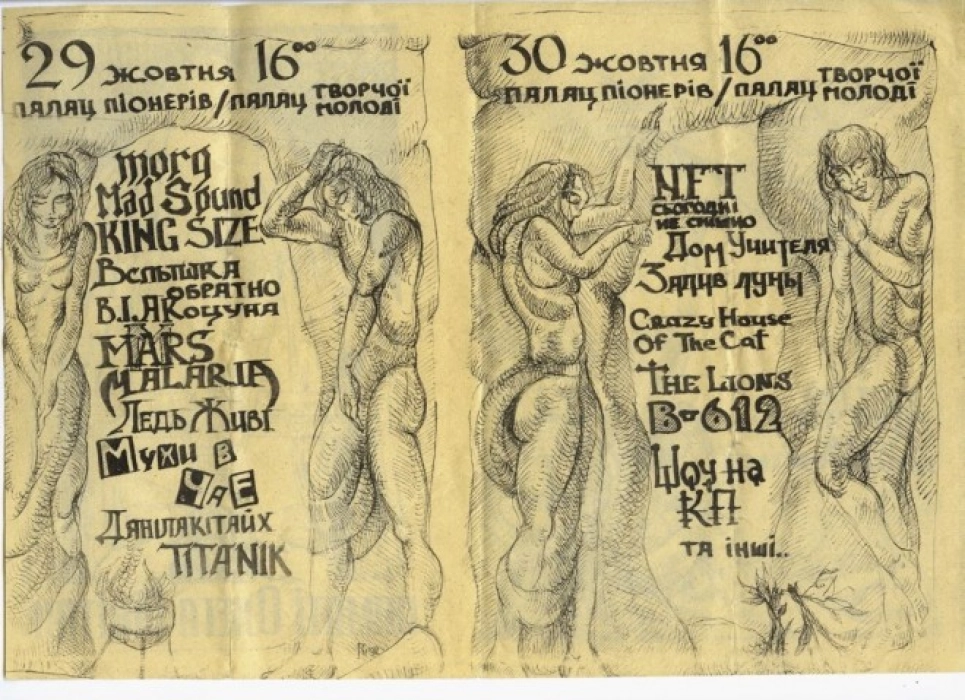 29 жовтня 16°°
палац піонерів/палац творчої молоді
morg
Mad Sound
KING SIZE
Вспышка
обратно
В.І.А Коцуна
MARS
MALARIA
Ледь Живі
Мухи в
Чає
Данілакітайх
TITANIK
30 жовтня 16°°
палац піонерів/палац творчої молоді
НЕТ
сьогодні
не смішно
Дом Учителя
Залив луны
Crazy House
Of The Cat
The Lions
B-612
Шоу на
КП
та інші..